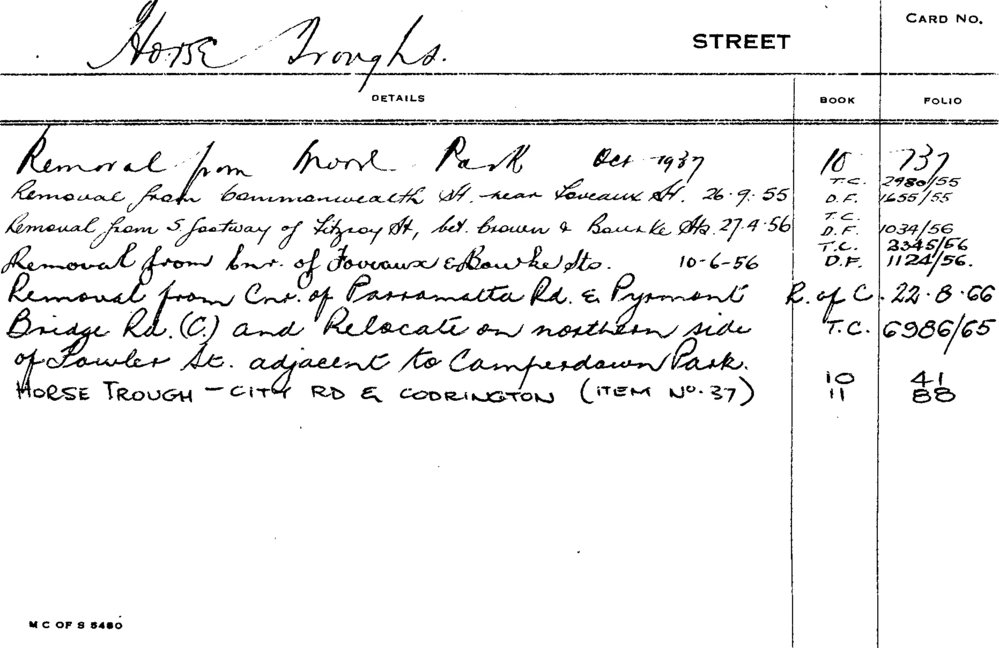 Horse Troughs.
STREET
CARD NO.
DETAILS
BOOK
FOLIO
Removal from Moore Park Oct 1937 10 737
T.C. 2980/55
Removal from Commonwealth St. near Foveaux St. 26-9-55 D.F. 1655/55
T.C.
Removal from S footway of Fitzroy St, bet. Crown & Bourke Sts. 27.4.56 D.F. 1034/56
T.C. 2345/56
Removal from Cnr. of Foveaux & Bourke Sts. 10-6-56 D.F. 1124/56.
Removal from Cnr. of Parramatta Rd. & Pyrmont R. of C. 22.8.66
Bridge Rd. (C.) and Relocate on northern side T.C. 6986/65
of Fowler St. adjacent to Camperdown Park.
10 41
HORSE TROUGH - CITY RD & CODRINGTON (ITEM NO. 37) 11 88
M C OF S 5480